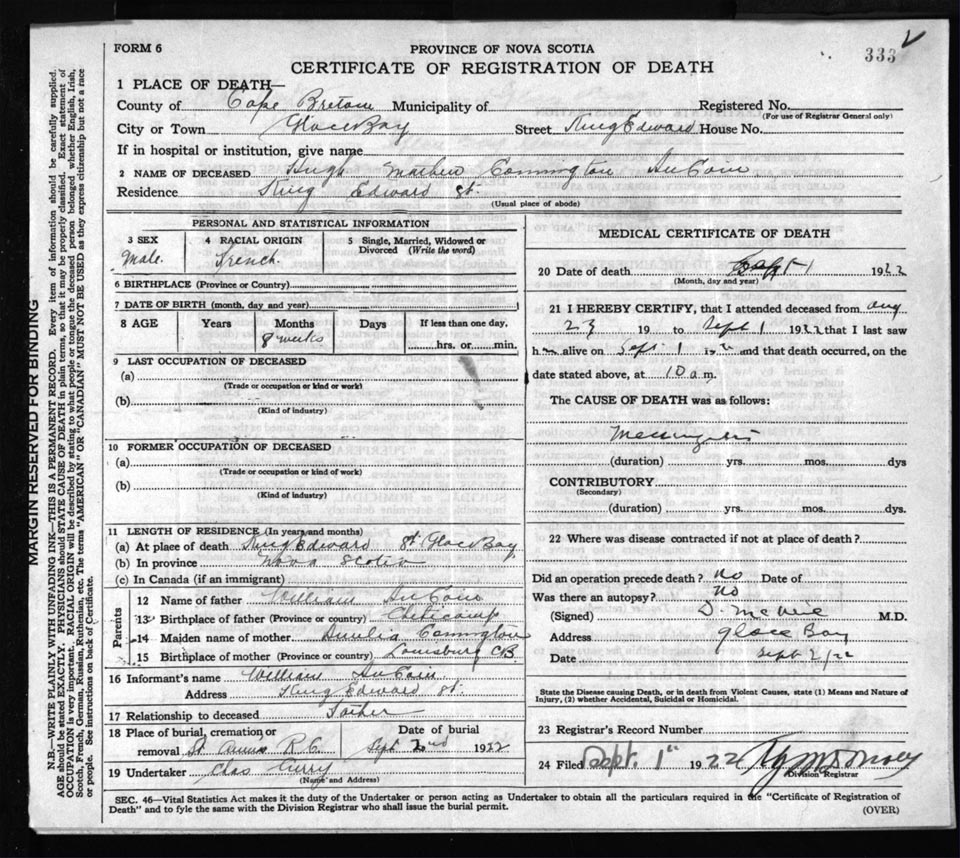 FORM 6
PROVINCE OF NOVA SCOTIA
333
CERTIFICATE OF REGISTRATION OF DEATH
1 PLACE OF DEATH—
County of Cape Breton Municipality of Registered No.
(For use of Registrar General only)
City or Town Glace Bay Street King Edward House No.
If in hospital or institution, give name
2 NAME OF DECEASED Hugh Mathew Connington AuCoin
Residence King Edward St.
(Usual place of abode)
PERSONAL AND STATISTICAL INFORMATION
3 SEX 4 RACIAL ORIGIN 5 Single, Married, Widowed or Divorced (Write the word)
Male. French.
6 BIRTHPLACE (Province or County)
7 DATE OF BIRTH (month, day and year)
8 AGE Years Months Days If less than one day,
8 weeks
hrs. or min.
9 LAST OCCUPATION OF DECEASED
(a)
(Trade or occupation or kind or work)
(b)
(Kind of industry)
10 FORMER OCCUPATION OF DECEASED
(a)
(Trade or occupation or kind of work)
(b)
(Kind of industry)
11 LENGTH OF RESIDENCE (In years and months)
(a) At place of death King Edward St. Glace Bay
(b) In province Nova Scotia
(c) In Canada (if an immigrant)
Parents
12 Name of father William AuCoin
13 Birthplace of father (Province or country) Cheticamp
14 Maiden name of mother Connington
15 Birthplace of mother (Province or country) Louisburg C.B.
16 Informant's name William AuCoin
Address King Edward St.
17 Relationship to deceased Father
18 Place of burial, cremation or removal R.C. Date of burial Sept 2nd 1922
19 Undertaker Chas Curry
(Name and Address)
MEDICAL CERTIFICATE OF DEATH
20 Date of death Sept 1 1922
(Month, day and year)
21 I HEREBY CERTIFY, that I attended deceased from Aug
23 19 to Sept 1 1922 that I last saw
him alive on Sept 1 and that death occurred, on the
date stated above, at 10 a.m.
The CAUSE OF DEATH was as follows:
Meningitis
(duration) yrs. mos. dys
CONTRIBUTORY
(Secondary)
(duration) yrs. mos. dys
22 Where was disease contracted if not at place of death?
Did an operation precede death? No Date of
Was there an autopsy? No
(Signed) D. M.D.
Address Glace Bay
Date Sept /22
State the Disease causing Death, or in death from Violent Causes, state (1) Means and Nature of
Injury, (2) whether Accidental, Suicidal or Homicidal.
23 Registrar's Record Number
24 Filed Sept. 1st 1922
Division Registrar
SEC. 46—Vital Statistics Act makes it the duty of the Undertaker or person acting as Undertaker to obtain all the particulars required in the "Certificate of Registration of
Death" and to fyle the same with the Division Registrar who shall issue the burial permit.
(OVER)
MARGIN RESERVED FOR BINDING
N.B.—WRITE PLAINLY WITH UNFADING INK—THIS IS A PERMANENT RECORD. Every item of information should be carefully supplied.
AGE should be stated EXACTLY. PHYSICIANS should STATE CAUSE OF DEATH in plain terms, so that it may be properly classified. Exact statement of
OCCUPATION is very important. RACIAL ORIGIN will be described by stating to what people or tongue the deceased person belonged whether English, Irish,
Scotch, French, German, Russian, Ruthenian, etc. The terms "AMERICAN" OR "CANADIAN" MUST NOT BE USED as they express citizenship but not a race
or people. See instructions on back of Certificate.